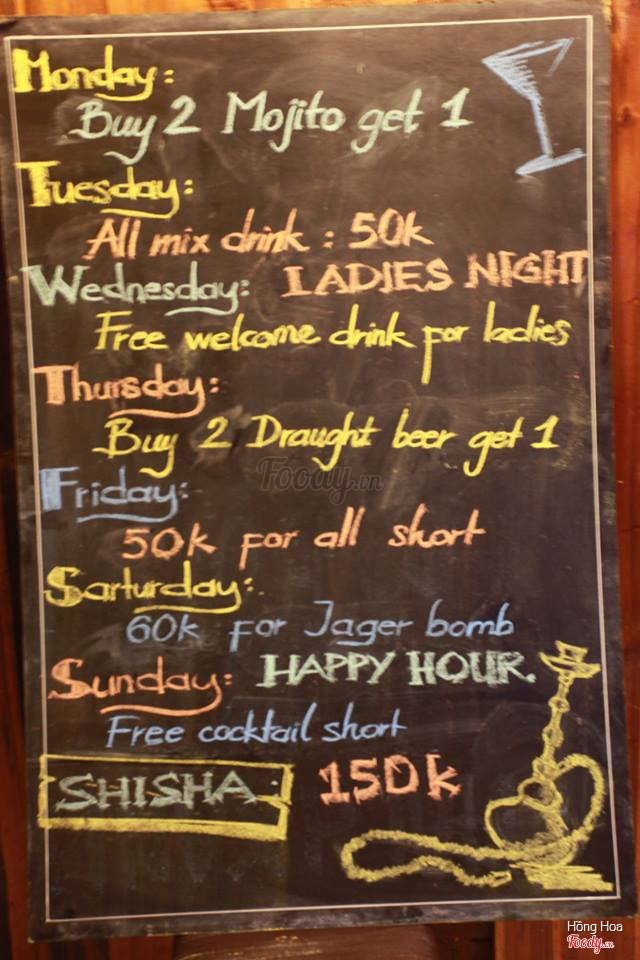 Monday:
Buy 2 Mojito get 1
Tuesday:
All mix drink : 50k
Wednesday: LADIES NIGHT
Free welcome drink for ladies
Thursday:
Buy 2 Draught beer get 1
Foody.vn
Friday:
50k for all short
Sarturday:
60k for Jager bomb
Sunday: HAPPY HOUR.
Free cocktail short
SHISHA: 150k
Hồng Hoa
Foody.vn